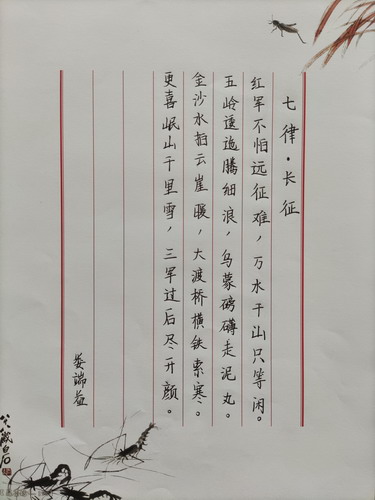 七律·长征
红军不怕远征难，万水千山只等闲。
五岭逶迤腾细浪，乌蒙磅礴走泥丸。
金沙水拍云崖暖，大渡桥横铁索寒。
更喜岷山千里雪，三军过后尽开颜。
娄端益
歲白石